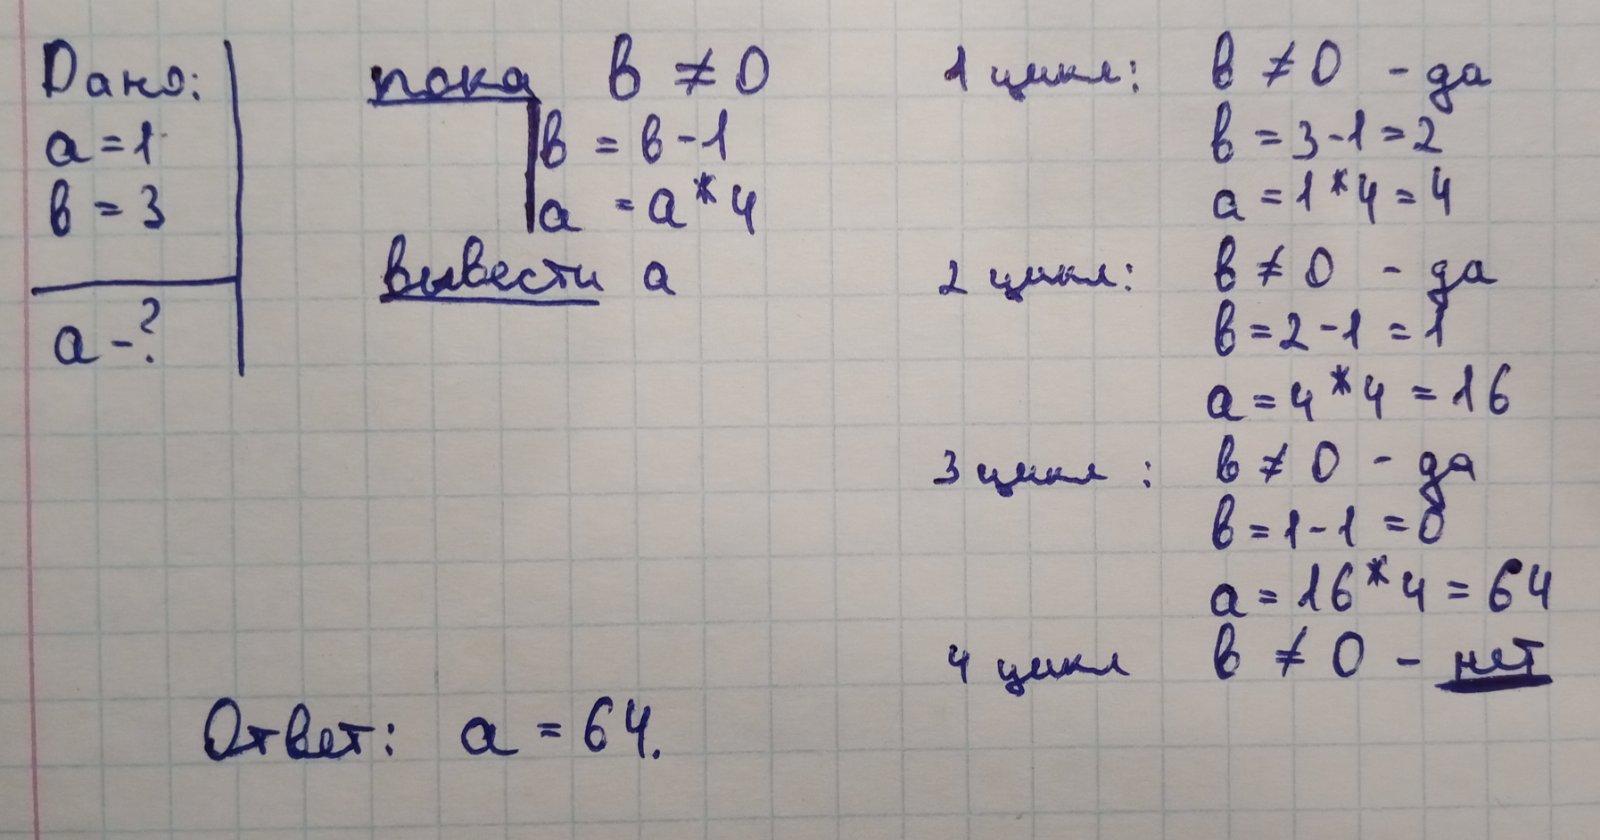 Дано:
а = 1
в = 3
а - ?
пока в ≠ 0
в = в - 1
а = а * 4
вывести а
1 цикл: в ≠ 0 - да
в = 3 - 1 = 2
а = 1 * 4 = 4
2 цикл: в ≠ 0 - да
в = 2 - 1 = 1
а = 4 * 4 = 16
3 цикл: в ≠ 0 - да
в = 1 - 1 = 0
а = 16 * 4 = 64
4 цикл в ≠ 0 - нет
Ответ: а = 64.